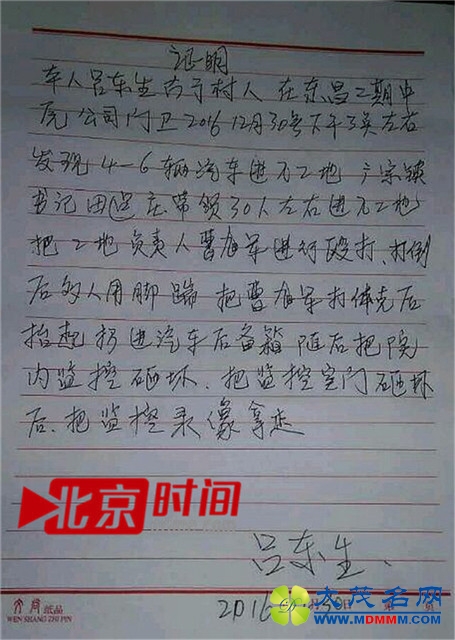 证明
本人吕东生 古子村人 在东昌二期中
庑公司门卫2016 12月30号下午3点左右
发现4-6辆汽车进入工地 广宗镇
书记田 庄带领30人左右进入工地
把工地负责人曹 军进行殴打、打倒
后多人用脚踹 把曹 军打休克后
抬起 扔进汽车后备箱 随后把院
内监控砸坏、把监控室门砸坏
后、把监控录像拿走
北京时间
吕东生
2016 月30日 第 页
纸品
WEN SHANG ZHI PIN
大茂名网
WWW.MDMMM.COM